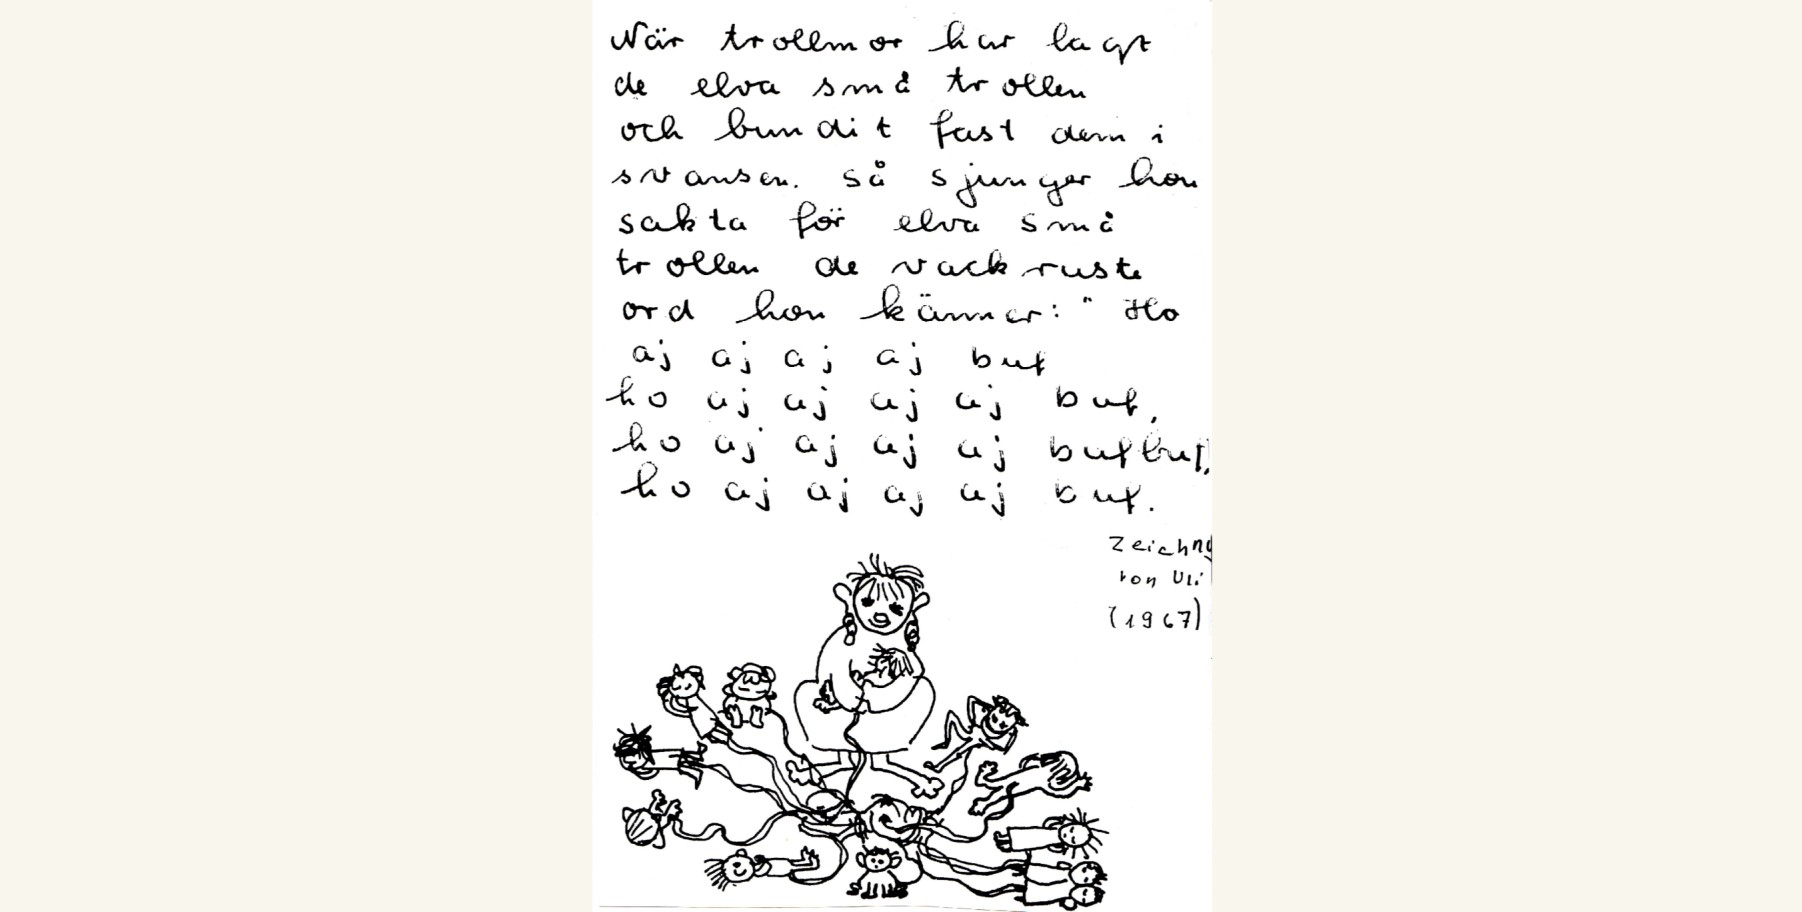 När trollmor har lagt
de elva små trollen
och bundit fast dem i
svansen. så sjunger hon
sakta för elva små
trollen de vackruste
ord hon känner: " Ho
aj aj aj aj buf
ho aj aj aj aj buf,
ho aj aj aj aj bufbuf,
ho aj aj aj aj buf.
Zeichng
von Uli
(1967)